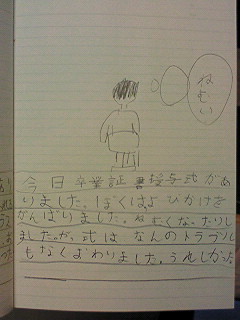 ねむい
今日卒業証書授与式があ
りました。ぼくはよびかけを
がんばりました。ねむくなったりし
ましたが、式はなんのトラブル
もなくおわりました。うれしかった。